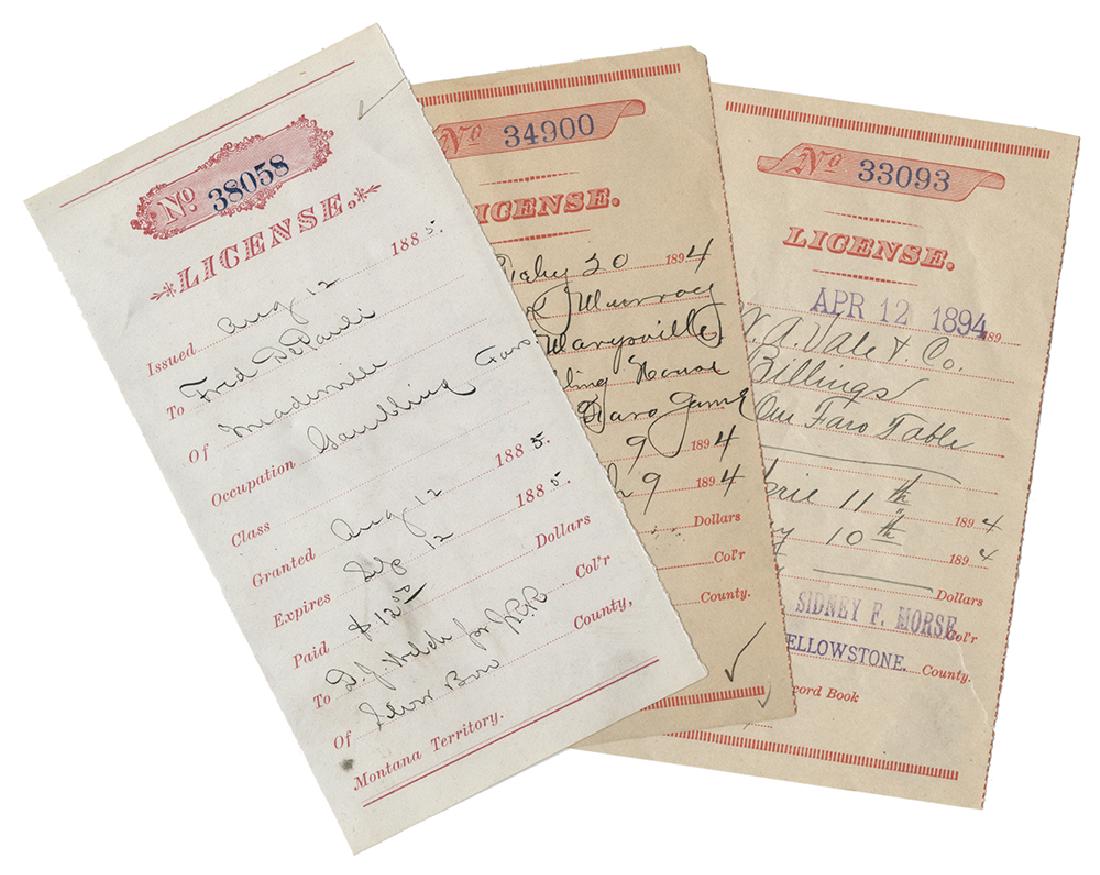 No 38058
LICENSE.
Issued Aug 12 1885.
To Fred DePauli
Of
Occupation Gambling Faro
Class
Granted Aug 12 1885.
Expires Sep 12 1885.
Paid $12.50 Dollars
To D.J. Welch for Col'r
Of Silver Bow County,
Montana Territory.
No 34900
LICENSE.
20 1894
Murray
Marysville
Faro Game
9 1894
9 1894
Dollars
Col'r
County.
No 33093
LICENSE.
APR 12 1894 189
A. Vale & Co.
Billings
One Faro Table
April 11th 1894
10th 1894
Dollars
SIDNEY F. MORSE Col'r
ELLOWSTONE. County.
cord Book